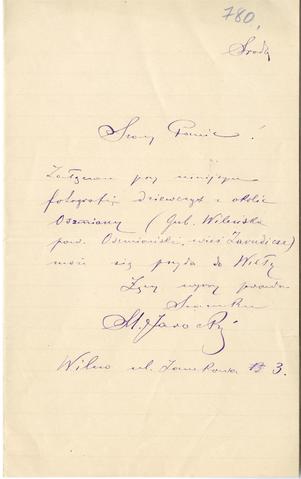 780.
Środa
Szan. Panie!
Załączam przy niniejszym
fotografię dziewcząt z okolic
Oszmiany (Gub. Wileńska
pow. Oszmiański, wieś Zarudicze)
może się przyda do Wisły
Łączę wyrazy prawdz.
szacunku
Wilno ul. Zamkowa 3.